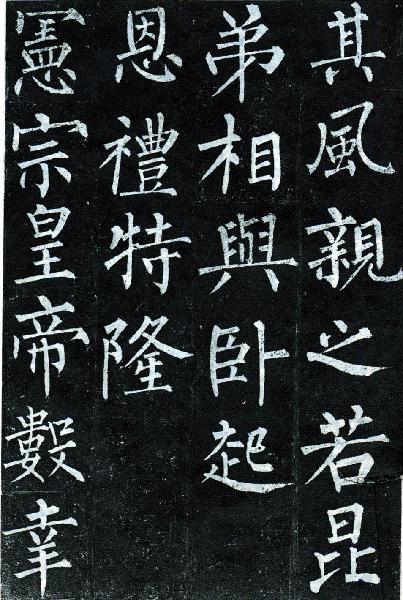 其風親之若昆
弟相與卧起
恩禮特隆
憲宗皇帝數幸